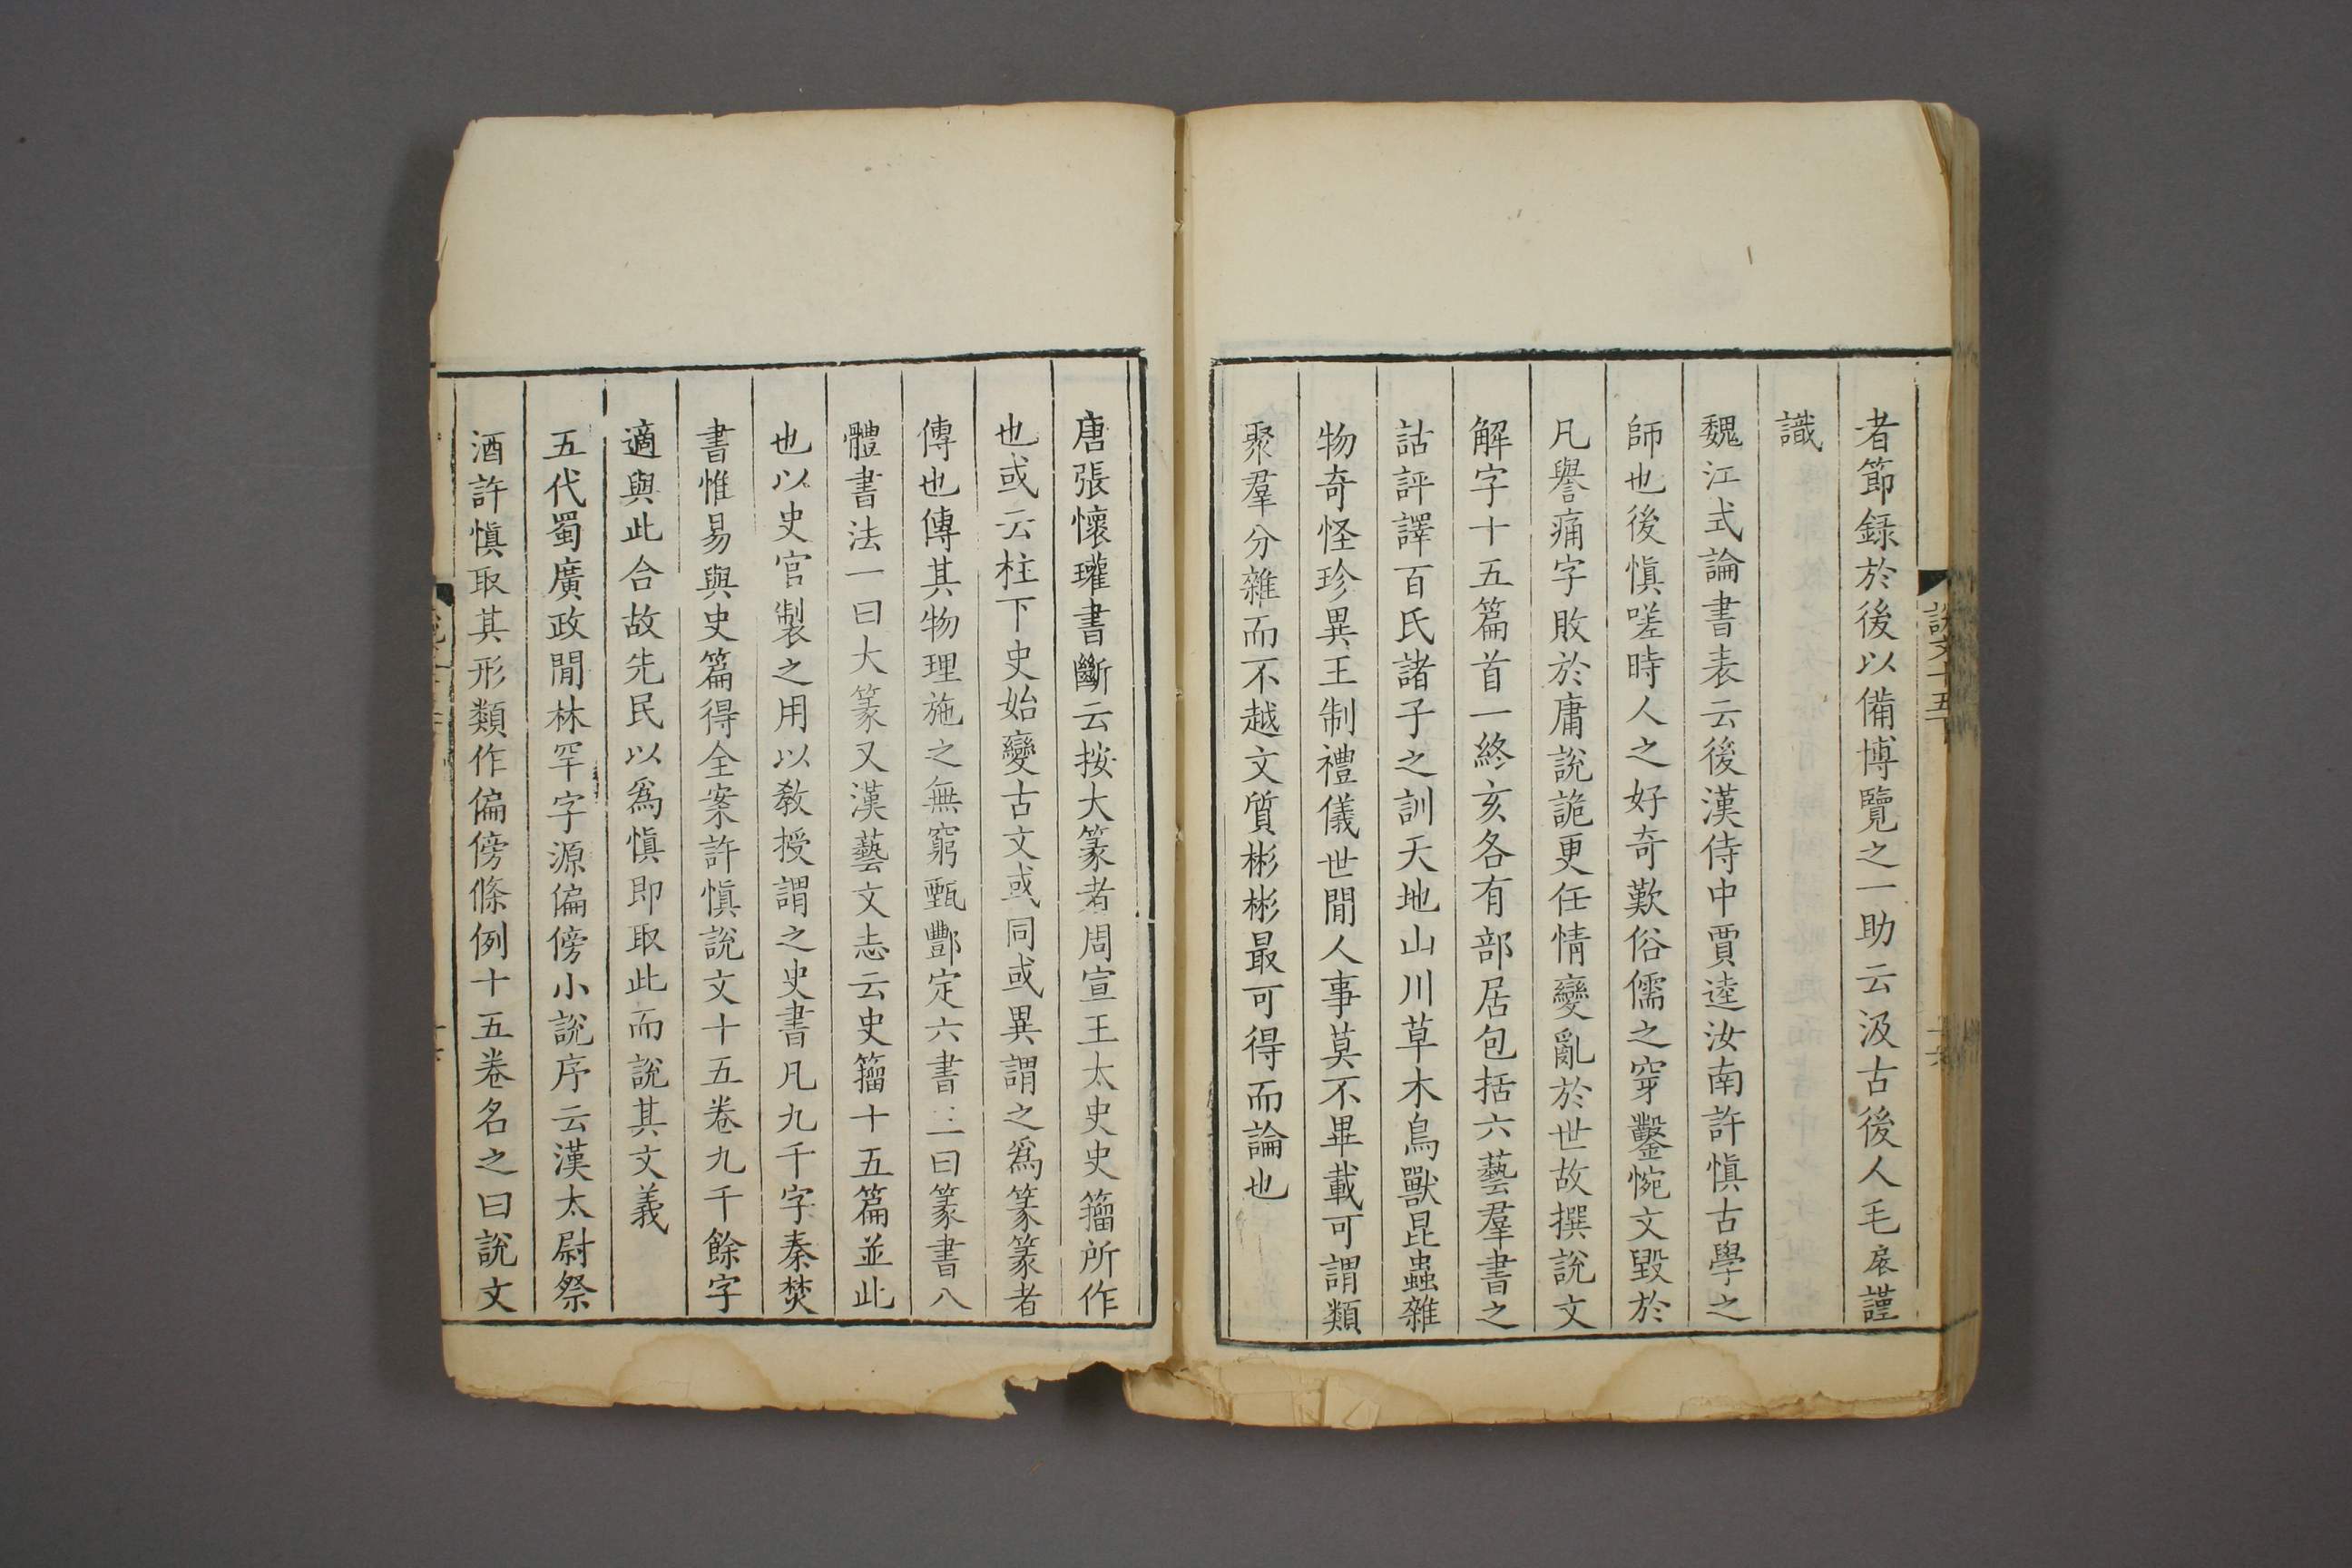 說文十五下
者節録於後以備博覽之一助云汲古後人毛扆謹
識
魏江式論書表云後漢侍中賈逵汝南許慎古學之
師也後慎嗟時人之好奇歎俗儒之穿鑿惋文毀於
凡譽痛字敗於庸說詭更任情變亂於世故撰說文
解字十五篇首一終亥各有部居包括六藝羣書之
詁評譯百氏諸子之訓天地山川草木鳥獸昆蟲雜
物奇怪珍異王制禮儀世閒人事莫不畢載可謂類
聚羣分雜而不越文質彬彬最可得而論也
唐張懷瓘書斷云按大篆者周宣王太史史籀所作
也或云柱下史始變古文或同或異謂之爲篆篆者
傳也傳其物理施之無窮甄酆定六書三曰篆書八
體書法一曰大篆又漢藝文志云史籀十五篇並此
也以史官製之用以教授謂之史書凡九千字秦焚
書惟易與史篇得全案許慎說文十五卷九千餘字
適與此合故先民以爲慎即取此而說其文義
五代蜀廣政閒林罕字源偏傍小說序云漢太尉祭
酒許慎取其形類作偏傍條例十五卷名之曰說文